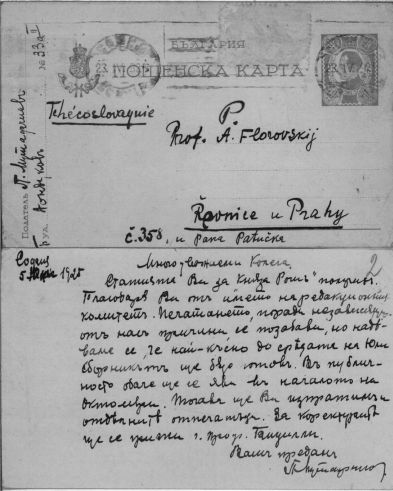 БЪЛГАРИЯ
ПОЩЕНСКА КАРТА
Податель П. Мутафчиевъ
Бул. № 33а
Tchécoslovaquie
P.
Prof. A. Florovskij
Řevnice u Prahy
č. 358, u Pana Patučka
София
5 1925
2
Многоуважаеми Колега,
Статията Ви за Князъ Росъ" получихъ.
Благодаря Ви отъ името на редакционния
комитетъ. Печатането, поради независящи
отъ насъ причини се позабави, но надѣ-
ваме се, че най-късно до срѣдата на Юни
сборникътъ ще бѫде готовъ. Въ публич-
ность обаче ще се яви въ началото на
октомври. Тогава ще Ви изпратимъ и
отдѣлнитѣ отпечатъци. За коректурите
ще се грижи г. проф. Бицилли.
Вашъ преданъ
П. Мутафчиевъ